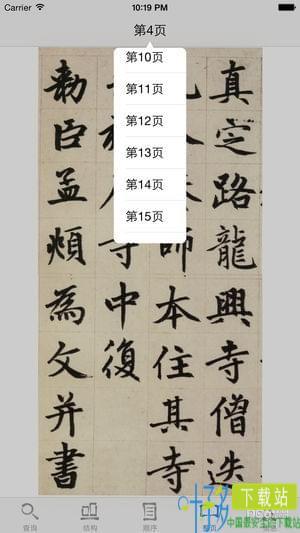 Carrier
10:19 PM
第4页
第10页
第11页
第12页
第13页
第14页
第15页
真定路龍興寺僧迭
師本住其寺
寺中復
勑臣孟頫為文并書
查询
结构
顺序
下载站
中国最安全的下载站